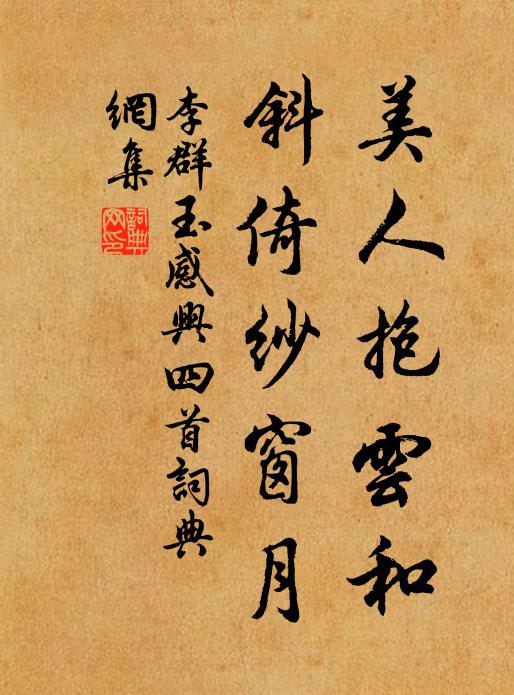 美人抱雲和
斜倚紗窗月
李群玉感興四首詞典
網集
詞典
网印